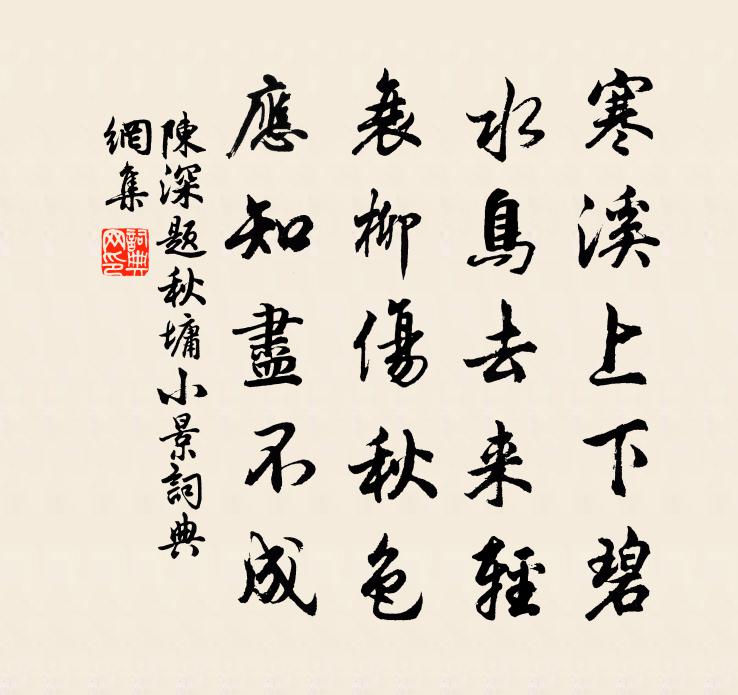 寒溪上下碧
水鳥去来輕
衰柳傷秋色
應知盡不成
陳深题秋墉小景詞典
網集
詞典
网印